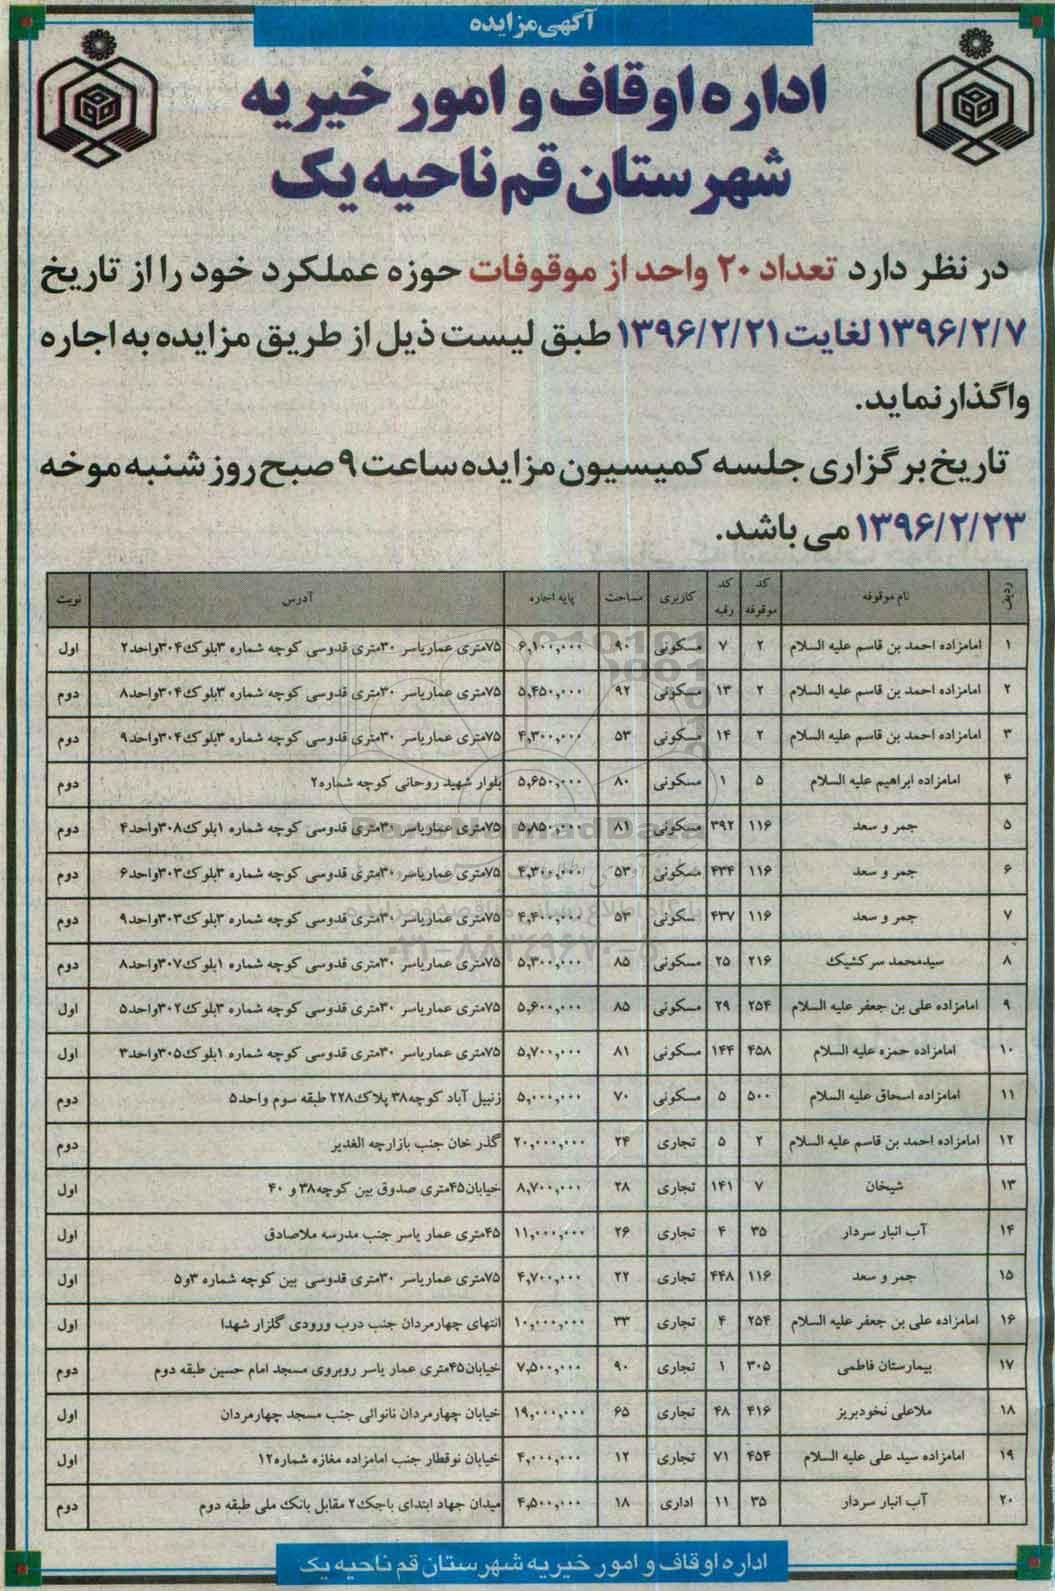 آگهی مزایده
اداره اوقاف و امور خیریه
شهرستان قم ناحیه یک
در نظر دارد تعداد ۲۰ واحد از موقوفات حوزه عملکرد خود را از تاریخ
۱۳۹۶/۲/۷ لغایت ۱۳۹۶/۲/۲۱ طبق لیست ذیل از طریق مزایده به اجاره
واگذار نماید.
تاریخ برگزاری جلسه کمیسیون مزایده ساعت ۹ صبح روز شنبه موخه
۱۳۹۶/۲/۲۳ می باشد.
ردیف نام موقوفه کد موقوفه کد رقبه کاربری مساحت پایه اجاره آدرس نوبت
۱ امامزاده احمد بن قاسم علیه السلام ۲ ۷ مسکونی ۹۰ ۶,۱۰۰,۰۰۰ ۷۵متری عماریاسر ۳۰متری قدوسی کوچه شماره ۳بلوک۳۰۴واحد۲ اول
۲ امامزاده احمد بن قاسم علیه السلام ۲ ۱۳ مسکونی ۹۲ ۵,۴۵۰,۰۰۰ ۷۵متری عماریاسر ۳۰متری قدوسی کوچه شماره ۳بلوک۳۰۴واحد۸ دوم
۳ امامزاده احمد بن قاسم علیه السلام ۲ ۱۴ مسکونی ۵۳ ۴,۳۰۰,۰۰۰ ۷۵متری عماریاسر ۳۰متری قدوسی کوچه شماره ۳بلوک۳۰۴واحد۹ دوم
۴ امامزاده ابراهیم علیه السلام ۵ ۱ مسکونی ۸۰ ۵,۶۵۰,۰۰۰ بلوار شهید روحانی کوچه شماره۲ دوم
۵ جمر و سعد ۱۱۶ ۳۹۲ مسکونی ۸۱ ۵,۸۵۰,۰۰۰ ۷۵متری عماریاسر ۳۰متری قدوسی کوچه شماره ۱بلوک۳۰۸واحد۴ دوم
۶ جمر و سعد ۱۱۶ ۴۳۴ مسکونی ۵۳ ۴,۳۰۰,۰۰۰ ۷۵متری عماریاسر ۳۰متری قدوسی کوچه شماره ۳بلوک۳۰۳واحد۶ دوم
۷ جمر و سعد ۱۱۶ ۴۳۷ مسکونی ۵۳ ۴,۴۰۰,۰۰۰ ۷۵متری عماریاسر ۳۰متری قدوسی کوچه شماره ۳بلوک۳۰۳واحد۹ دوم
۸ سیدمحمد سرکشیک ۲۱۶ ۲۵ مسکونی ۸۵ ۵,۳۰۰,۰۰۰ ۷۵متری عماریاسر ۳۰متری قدوسی کوچه شماره ۱بلوک۳۰۷واحد۸ دوم
۹ امامزاده علی بن جعفر علیه السلام ۲۵۴ ۲۹ مسکونی ۸۵ ۵,۶۰۰,۰۰۰ ۷۵متری عماریاسر ۳۰متری قدوسی کوچه شماره ۳بلوک۳۰۲واحد۵ اول
۱۰ امامزاده حمزه علیه السلام ۴۵۸ ۱۴۴ مسکونی ۸۱ ۵,۷۰۰,۰۰۰ ۷۵متری عماریاسر ۳۰متری قدوسی کوچه شماره ۱بلوک۳۰۵واحد۳ اول
۱۱ امامزاده اسحاق علیه السلام ۵۰۰ ۵ مسکونی ۷۰ ۵,۰۰۰,۰۰۰ زنبیل آباد کوچه۳۸ پلاک۲۲۸ طبقه سوم واحد۵ دوم
۱۲ امامزاده احمد بن قاسم علیه السلام ۲ ۵ تجاری ۲۴ ۲۰,۰۰۰,۰۰۰ گذر خان جنب بازارچه الغدیر دوم
۱۳ شیخان ۷ ۱۴۱ تجاری ۲۸ ۸,۷۰۰,۰۰۰ خیابان۴۵متری صدوق بین کوچه۳۸ و ۴۰ اول
۱۴ آب انبار سردار ۳۵ ۴ تجاری ۲۶ ۱۱,۰۰۰,۰۰۰ ۴۵متری عمار یاسر جنب مدرسه ملاصادق اول
۱۵ جمر و سعد ۱۱۶ ۴۴۸ تجاری ۲۲ ۴,۷۰۰,۰۰۰ ۷۵متری عماریاسر ۳۰متری قدوسی بین کوچه شماره ۳و۵ اول
۱۶ امامزاده علی بن جعفر علیه السلام ۲۵۴ ۴ تجاری ۳۳ ۱۰,۰۰۰,۰۰۰ انتهای چهارمردان جنب درب ورودی گلزار شهدا اول
۱۷ بیمارستان فاطمی ۳۰۵ ۱ تجاری ۹۰ ۷,۵۰۰,۰۰۰ خیابان۴۵متری عمار یاسر روبروی مسجد امام حسین طبقه دوم دوم
۱۸ ملاعلی نخودبریز ۴۱۶ ۴۸ تجاری ۶۵ ۱۹,۰۰۰,۰۰۰ خیابان چهارمردان نانوائی جنب مسجد چهارمردان اول
۱۹ امامزاده سید علی علیه السلام ۴۵۴ ۷۱ تجاری ۱۲ ۴,۰۰۰,۰۰۰ خیابان نوقطار جنب امامزاده مغازه شماره۱۲ اول
۲۰ آب انبار سردار ۳۵ ۱۱ اداری ۱۸ ۴,۵۰۰,۰۰۰ میدان جهاد ابتدای باجک۲ مقابل بانک ملی طبقه دوم دوم
اداره اوقاف و امور خیریه شهرستان قم ناحیه یک